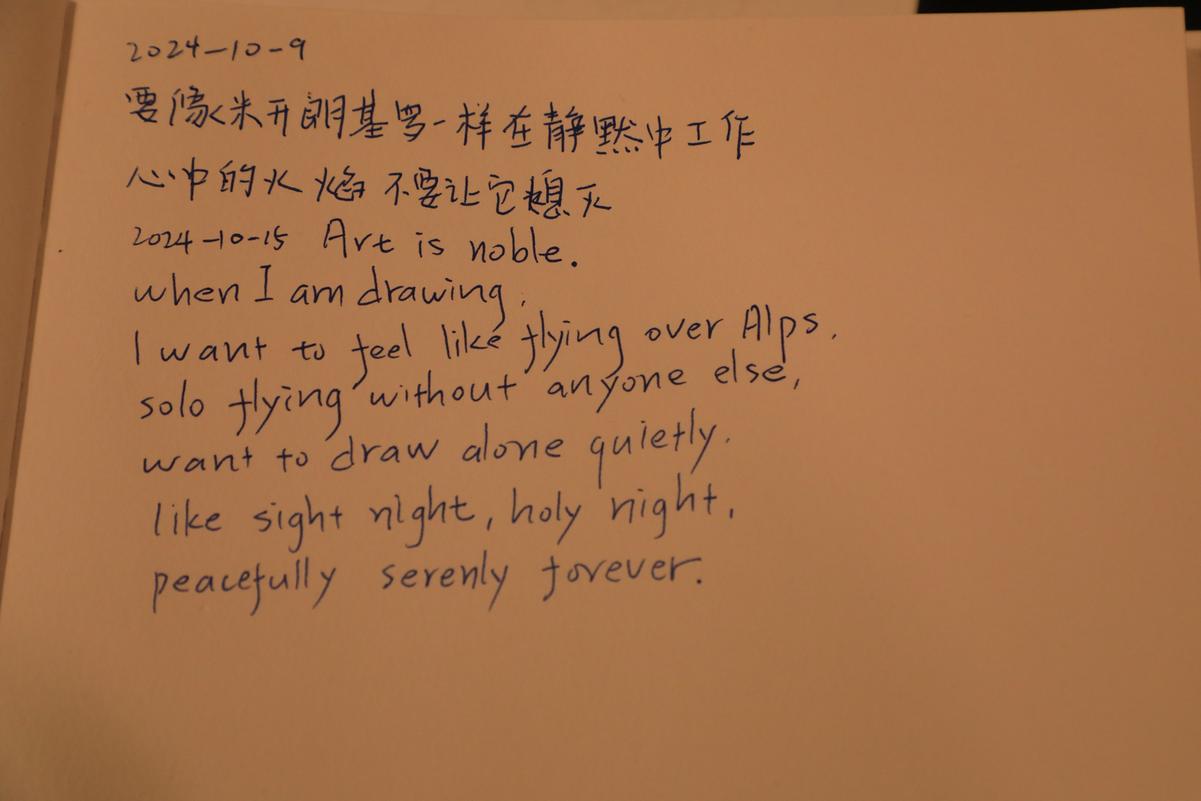 2024-10-9
要像米开朗基罗一样在静默中工作
心中的火焰 不要让它熄灭
2024-10-15 Art is noble.
when I am drawing,
I want to feel like flying over Alps.
solo flying without anyone else,
want to draw alone quietly.
like sight night, holy night,
peacefully serenly forever.